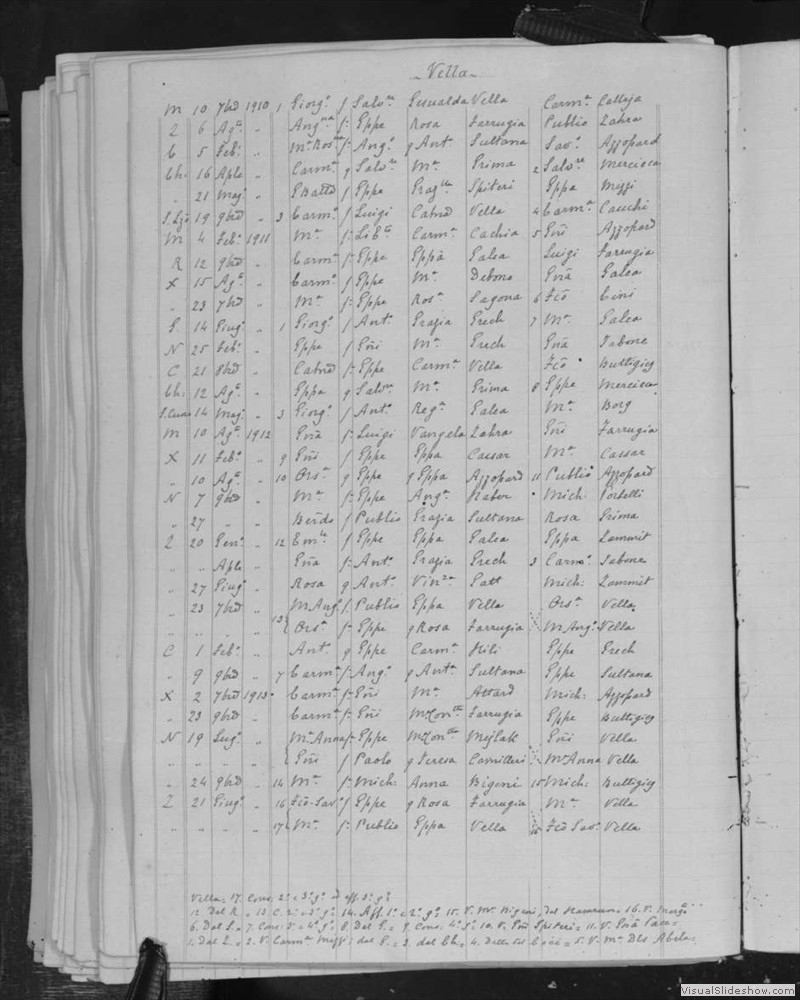 Vella
M 10 7bre 1910 1 Giorgo f Salvre Gusalda Vella Carma Calleja
Z 6 Aga " f: Gppe Rosa Farrugia Publio Zahra
5 Feb: " f: Ango q Anta Sultana Savo Azzopard
Ch: 16 Aple " Carma q Salvre Ma Grima 2 Salvre Mercieca
" 21 Mag: " f Gppe Spiteri Gppa Mizzi
19 9bre " 3 Carmo f Luigi Catna Vella 4 Carma Cauchi
M 4 Feb: 1911 Ma Carma Cachia 5 Gni Azzopard
R 12 9bre " Carma f: Gppe Gppa Galea Luigi Farrugia
X 15 Aga " Carmo f Gppe Ma Debono Gna Galea
" 23 7bre " Ma f: Gppe Rosa Sagona 6 Fco Cini
G 14 Giug: " 1 Giorgo f Anto Grazia Grech 7 Ma Galea
N 25 Feb: " Gppe f Gni Ma Grech Gna Tabone
C 21 8bre " Catna f: Gppe Carma Vella Fco Buttigieg
Ch: 12 Aga " Gppa q Salvre Ma Grima 8 Gppe Mercieca
14 Mag: " 3 Giorgo f Anto Rega Galea Ma Borg
M 10 Aga 1912 Gna f: Luigi Vangela Zahra Gni Farrugia
X 11 Feb: " 9 Gni f Gppe Gppa Cassar Ma Cassar
" 10 Aga " 10 Orsa q Gppe q Gppa Azzopard 11 Publio Azzopard
N 7 9bre " Ma f: Gppe Anga Rader Mich: Portelli
" 27 " " f Publio Grazia Sultana Rosa Grima
Z 20 Gen: " 12 f Gppe Gppa Galea Gppa Zammit
" " Aple " Gna f: Anto Grazia Grech 3 Carmo Tabone
" 27 Giug: " Rosa q Anto Vinza Patt Mich: Zammit
" 23 7bre " M Anga f. Publio Gppa Vella Orsa Vella
" " " " 13 Orsa f: Gppe q Rosa Farrugia M Anga Vella
C 1 Feb: " Anto q Gppe Carma Hili Gppe Grech
" 9 9bre " 7 Carma f: Ango q Anta Sultana Gppe Sultana
X 2 7bre 1913 Carma f: Gni Ma Attard Mich: Azzopard
" 23 9bre " Carma f: Gni Farrugia Gppe Buttigieg
N 19 Lug: " Ma Anna f: Gppe Mejlak Gni Vella
" " " " Gni f Paolo q Teresa Camilleri Ma Anna Vella
" 24 9bre " 14 Ma f: Mich: Anna Bigeni 15 Mich: Buttigieg
Z 21 Giug: " 16 Fco-Savo f Gppe q Rosa Farrugia Ma Vella
" " " " 17 Ma f: Publio Gppa Vella Fco Savo Vella
Vella = 17. Cons: 2o e 3o go ed aff. 3o go
12 Del R. = 13 C. 2o e 3o go 14. Aff. 1o e 2o go 15. V. Ma Bigeni, del Hamrun = 16. V.
6. Del L. = 7. Cons: 3o e 4o go 8. Del G. = 9. Cons: 4o go 10. V. Gni Spiteri = 11. V. Gna
1. Dal Z. = 2. V. Carma Mizzi: dal G. = 3. dal Ch. = 4. = 5. V. Ma Abela =
VisualSlideshow.com